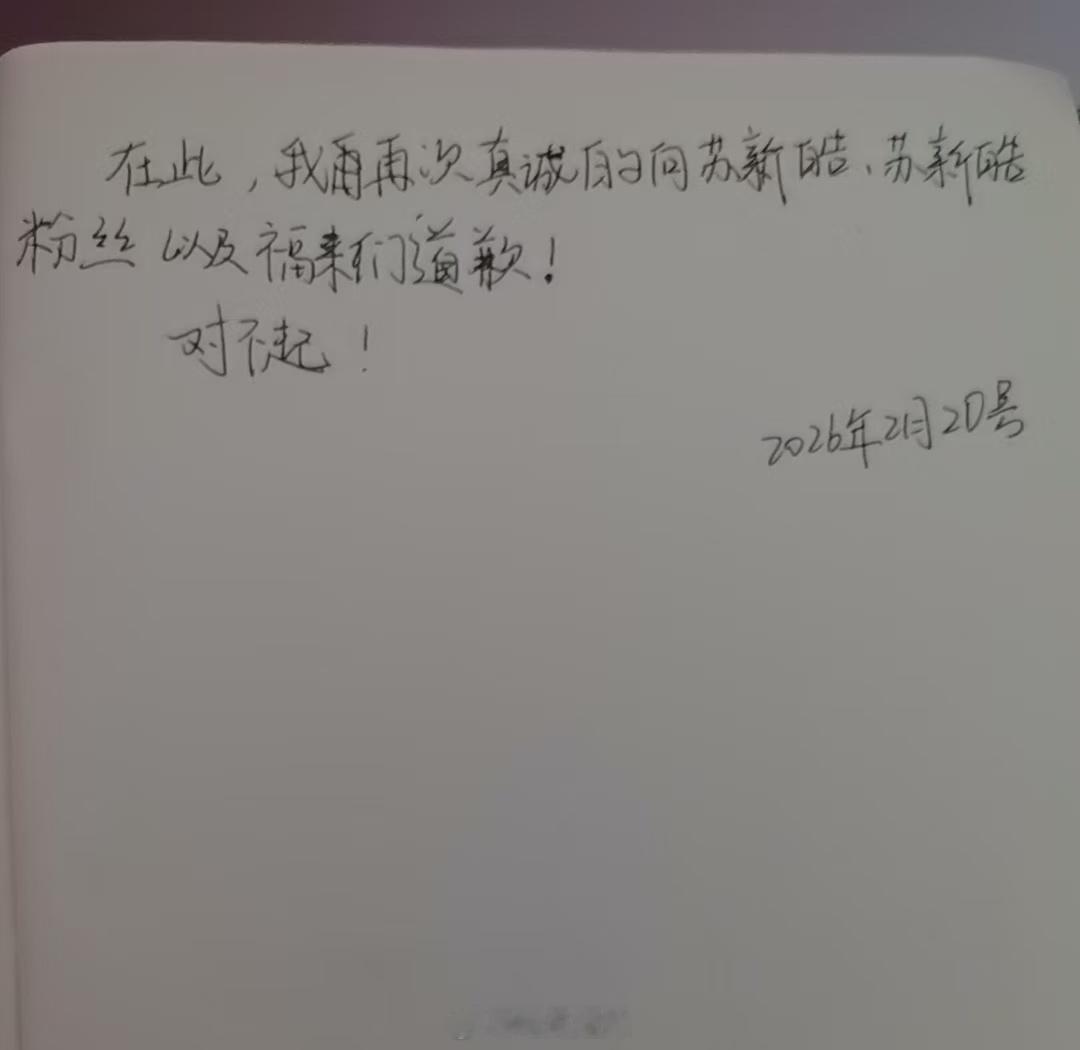 在此，我再再次真诚的向苏新皓、苏新皓
粉丝以及福来们道歉！
对不起！
2026年2月20号